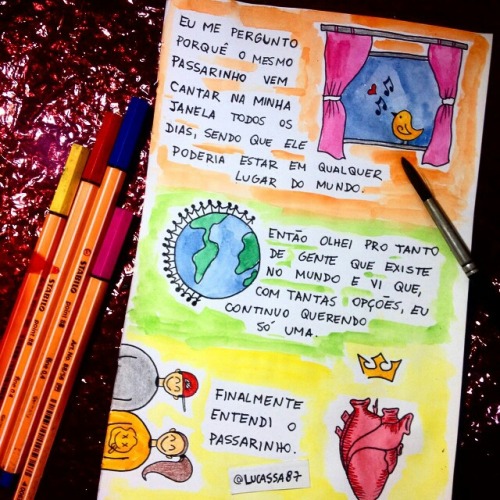 EU ME PERGUNTO
PORQUÊ O MESMO
PASSARINHO VEM
CANTAR NA MINHA
JANELA TODOS OS
DIAS, SENDO QUE ELE
PODERIA ESTAR EM QUALQUER
LUGAR DO MUNDO.
ENTÃO OLHEI PRO TANTO
DE GENTE QUE EXISTE
NO MUNDO E VI QUE,
COM TANTAS OPÇÕES, EU
CONTINUO QUERENDO
SÓ UMA.
FINALMENTE
ENTENDI O
PASSARINHO.
@LUCASSA87
STABILO
point 88
STABILO
point 88